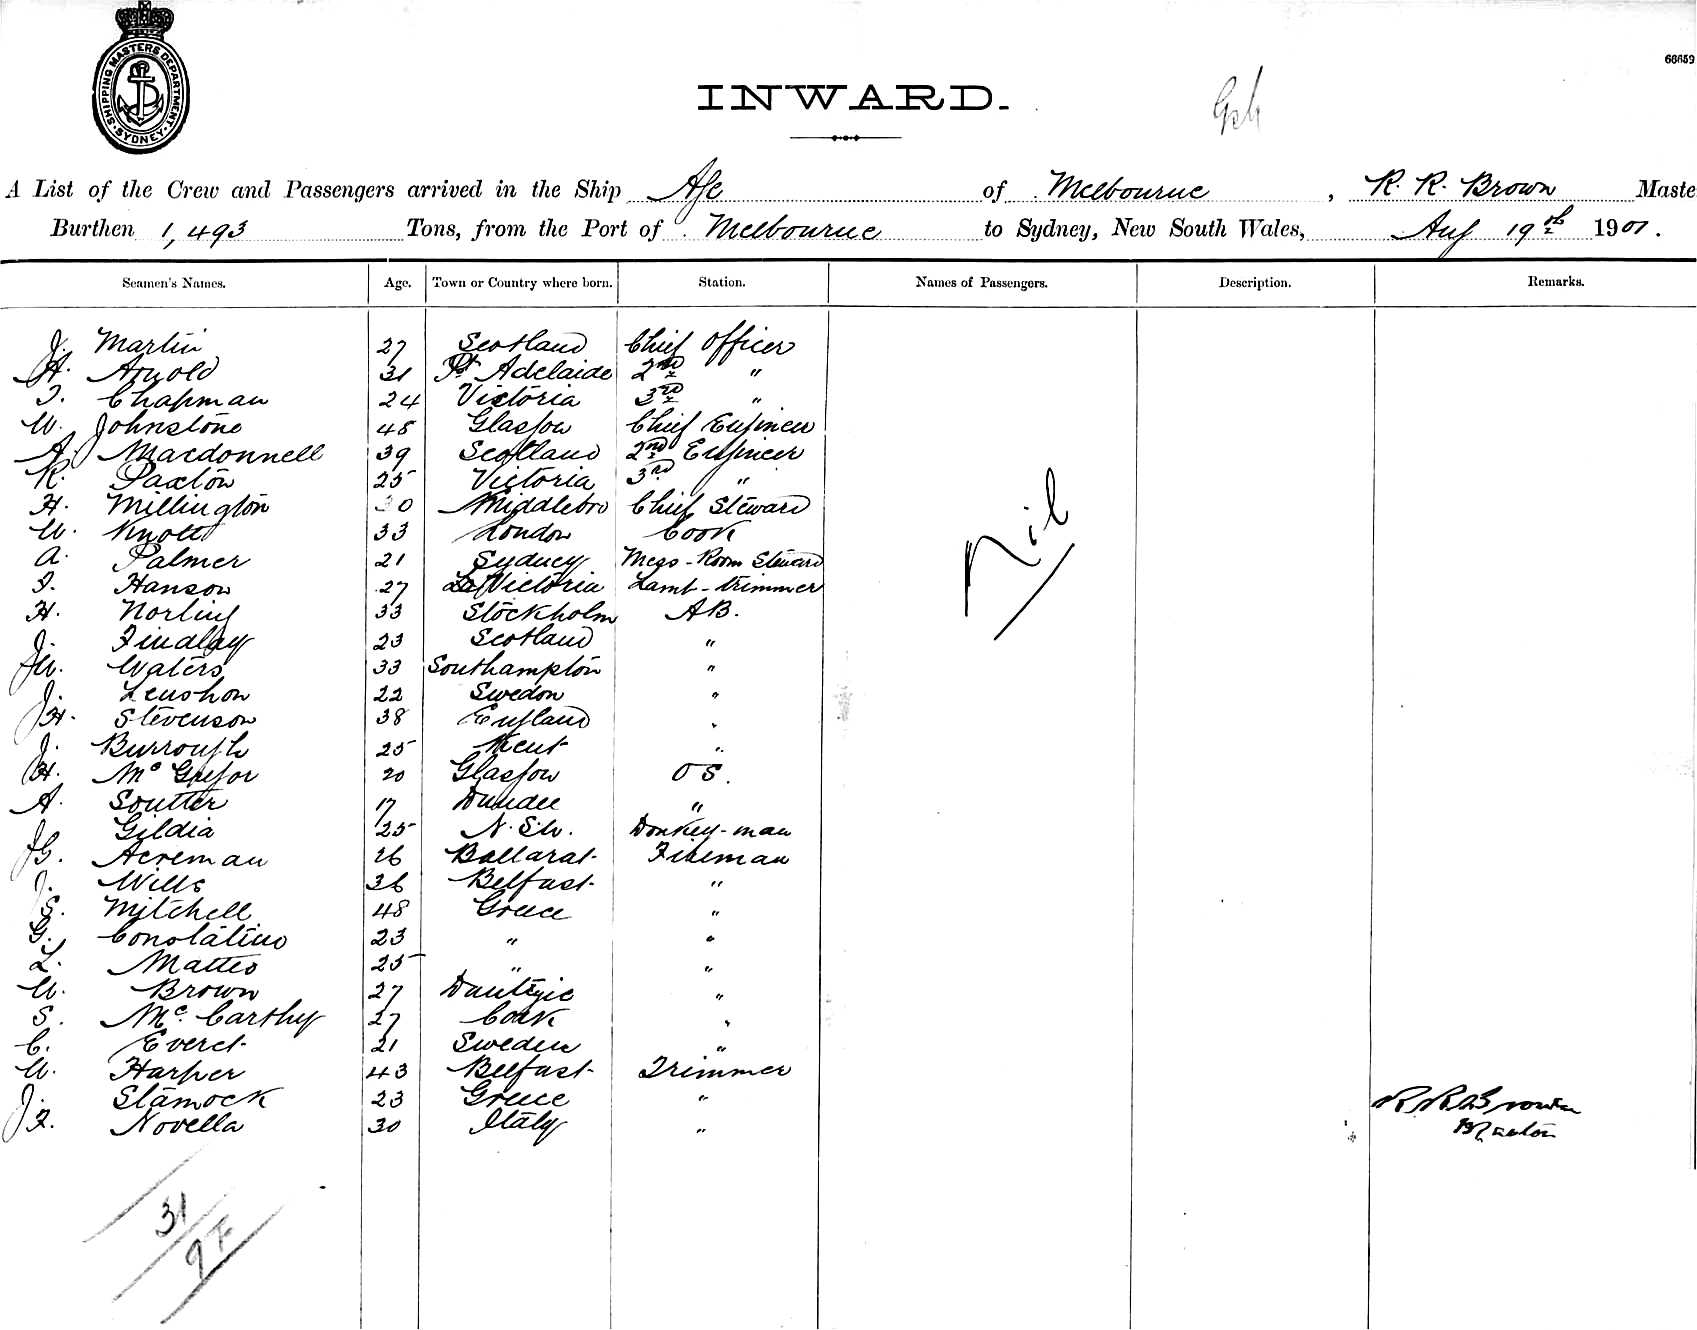 SHIPPING MASTERS DEPARTMENT SYDNEY
66659
INWARD.
A List of the Crew and Passengers arrived in the Ship Age of Melbourne, R. R. Brown Maste
Burthen 1,493 Tons, from the Port of Melbourne to Sydney, New South Wales, Aug 19th 1901.
Seamen's Names. Age. Town or Country where born. Station. Names of Passengers. Description. Remarks.
J. Martin 27 Scotland Chief Officer
H. Arnold 31 Pt Adelaide 2nd "
T. Chapman 24 Victoria 3rd "
W. Johnstone 48 Glasgow Chief Engineer
A. Macdonnell 39 Scotland 2nd Engineer
R. Paxton 25 Victoria 3rd "
H. Millington 30 Middlebro Chief Steward
W. Knott 33 London Cook
A. Palmer 21 Sydney Mess-Room Steward
Nil
T. Hanson 27 Victoria Lamp-trimmer
H. Norling 33 Stockholm AB.
J. Findlay 23 Scotland "
J W. Waters 33 Southampton "
J. Lenshon 22 Swedon "
J H. Stevenson 38 England "
J. Burrough 25 Kent "
H. McGregor 20 Glasgow O S.
A. Soutter 17 Dundee "
J. Gildia 25 N.S.W. Donkey-man
G. Acreman 26 Ballarat Fireman
J. Wills 36 Belfast "
S. Mitchell 48 Greece "
G. Constatino 23 " "
L. Matteo 25 " "
W. Brown 27 Dantzic "
S. McCarthy 27 Cork "
C. Everet 21 Sweden "
W. Harper 43 Belfast Trimmer
J. Stamock 23 Greece "
F. Novella 30 Italy "
R. R. Brown
Master
31